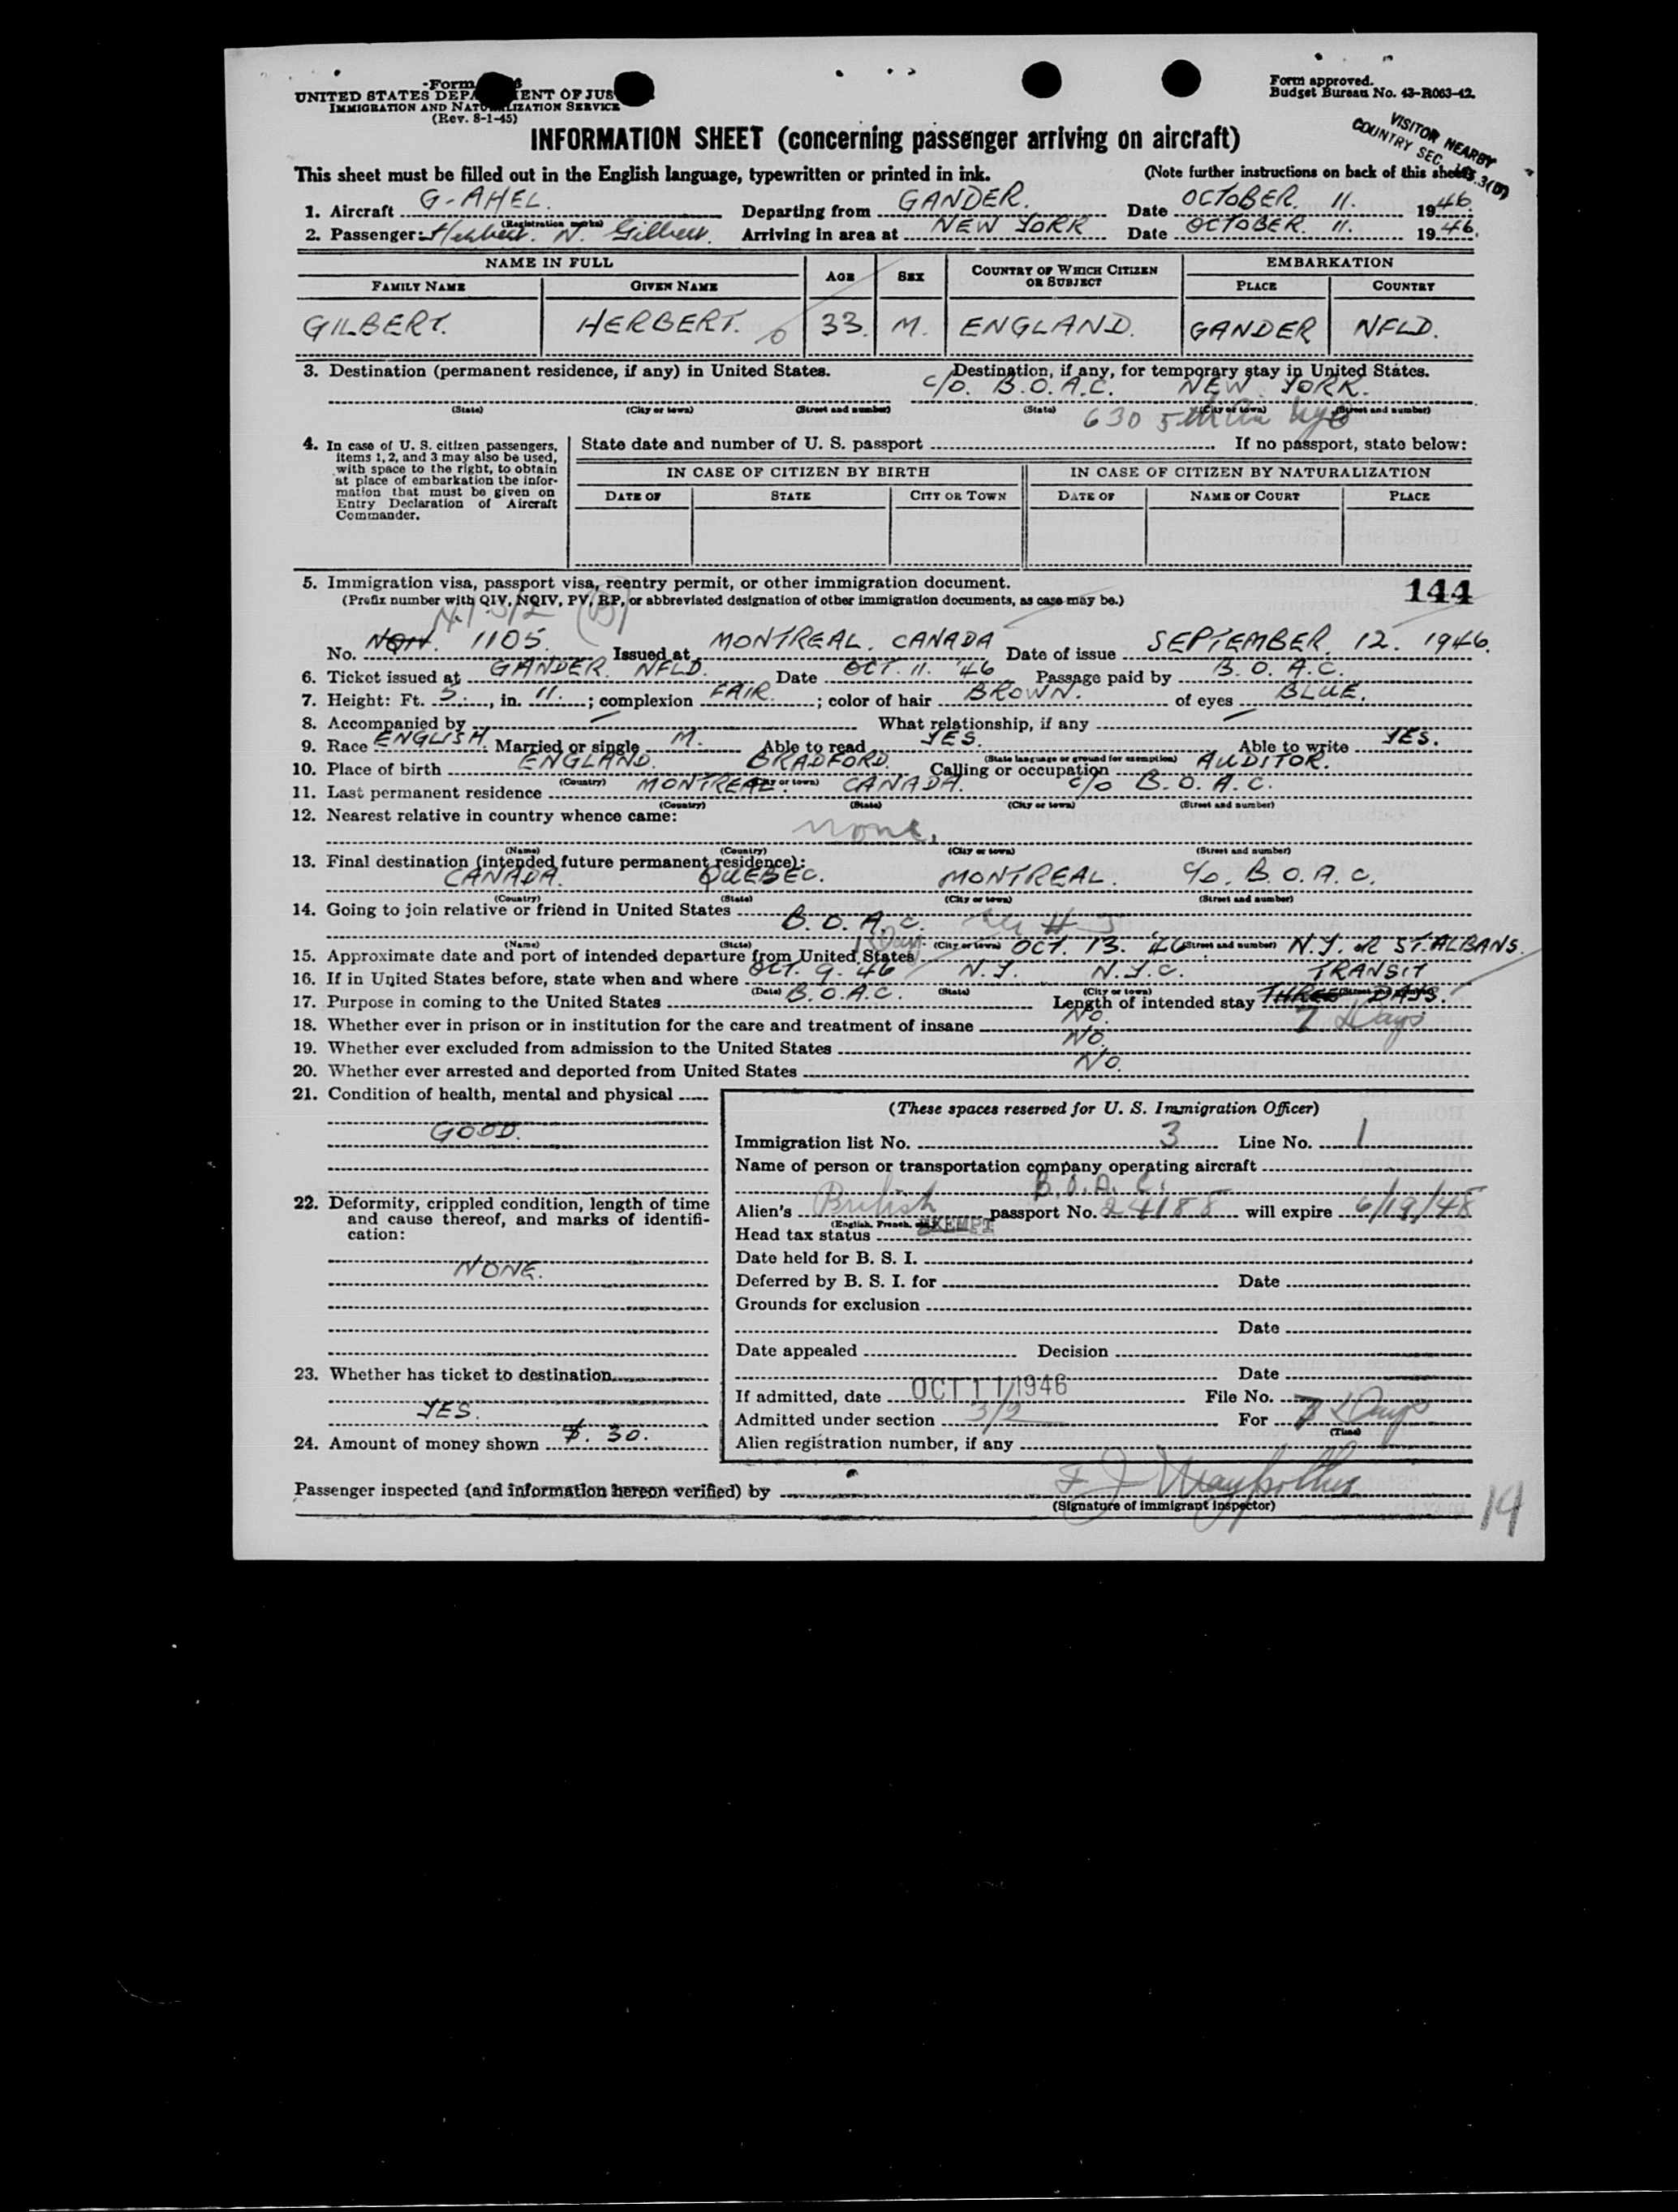 Form
UNITED STATES DEPA ENT OF JUS
IMMIGRATION AND NATURALIZATION SERVICE
(Rev. 8-1-45)
Form approved.
Budget Bureau No. 43-R063-42.
INFORMATION SHEET (concerning passenger arriving on aircraft)
VISITOR NEARBY
COUNTRY SEC. 3(B)
This sheet must be filled out in the English language, typewritten or printed in ink. (Note further instructions on back of this sheet)
1. Aircraft G-AHEL. Departing from GANDER. Date OCTOBER. 11. 1946.
(Registration marks)
2. Passenger: Herbert. N. Gilbert. Arriving in area at NEW YORK Date OCTOBER. 11. 1946.
NAME IN FULL AGE SEX COUNTRY OF WHICH CITIZEN OR SUBJECT EMBARKATION
FAMILY NAME GIVEN NAME PLACE COUNTRY
GILBERT. HERBERT. 33. M. ENGLAND. GANDER NFLD.
3. Destination (permanent residence, if any) in United States. Destination, if any, for temporary stay in United States.
c/o. B.O.A.C. NEW YORK.
(State) (City or town) (Street and number) (State) (City or town) (Street and number)
630 5th Av NYC
4. In case of U. S. citizen passengers, items 1, 2, and 3 may also be used, with space to the right, to obtain at place of embarkation the information that must be given on Entry Declaration of Aircraft Commander.
State date and number of U. S. passport If no passport, state below:
IN CASE OF CITIZEN BY BIRTH IN CASE OF CITIZEN BY NATURALIZATION
DATE OF STATE CITY OR TOWN DATE OF NAME OF COURT PLACE
5. Immigration visa, passport visa, reentry permit, or other immigration document. 144
(Prefix number with QIV, NQIV, PV, RP, or abbreviated designation of other immigration documents, as case may be.)
3/2 (B)
No. 1105. Issued at MONTREAL. CANADA Date of issue SEPTEMBER. 12. 1946.
6. Ticket issued at GANDER. NFLD. Date OCT. 11. '46 Passage paid by B.O.A.C.
7. Height: Ft. 5., in. 11.; complexion FAIR.; color of hair BROWN. of eyes BLUE.
8. Accompanied by — What relationship, if any —
9. Race ENGLISH. Married or single M. Able to read YES. Able to write YES.
(State language or ground for exemption)
10. Place of birth ENGLAND. BRADFORD. Calling or occupation AUDITOR.
(Country) (City or town)
11. Last permanent residence MONTREAL. CANADA. c/o B.O.A.C.
(Country) (State) (City or town) (Street and number)
12. Nearest relative in country whence came:
None.
(Name) (Country) (City or town) (Street and number)
13. Final destination (intended future permanent residence):
CANADA. QUEBEC. MONTREAL. c/o. B.O.A.C.
(Country) (State) (City or town) (Street and number)
14. Going to join relative or friend in United States B.O.A.C.
(Name) (State) (City or town) (Street and number)
15. Approximate date and port of intended departure from United States OCT. 13. '46 N.Y. OR ST. ALBANS.
16. If in United States before, state when and where OCT. 9. 46 N.Y. N.Y.C. TRANSIT
(Date) (State) (City or town) (Street and number)
17. Purpose in coming to the United States B.O.A.C. Length of intended stay THREE DAYS.
7 Days
18. Whether ever in prison or in institution for the care and treatment of insane NO.
19. Whether ever excluded from admission to the United States NO.
20. Whether ever arrested and deported from United States NO.
21. Condition of health, mental and physical
GOOD.
22. Deformity, crippled condition, length of time and cause thereof, and marks of identification:
NONE.
23. Whether has ticket to destination
YES.
24. Amount of money shown $. 30.
(These spaces reserved for U. S. Immigration Officer)
Immigration list No. 3 Line No. 1
Name of person or transportation company operating aircraft
B.O.A.C.
Alien's British passport No. 24188 will expire 6/19/48
(English, French, etc.)
Head tax status EXEMPT
Date held for B. S. I.
Deferred by B. S. I. for Date
Grounds for exclusion
Date
Date appealed Decision
Date
If admitted, date OCT 11 1946 File No.
Admitted under section 3/2 For 7 Days
(Time)
Alien registration number, if any
Passenger inspected (and information hereon verified) by
(Signature of immigrant inspector)
14